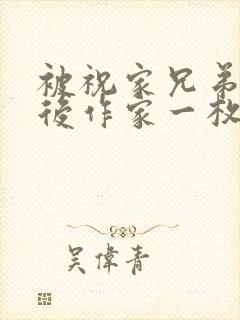 被祝家兄弟
後作家一枚
吴偉青